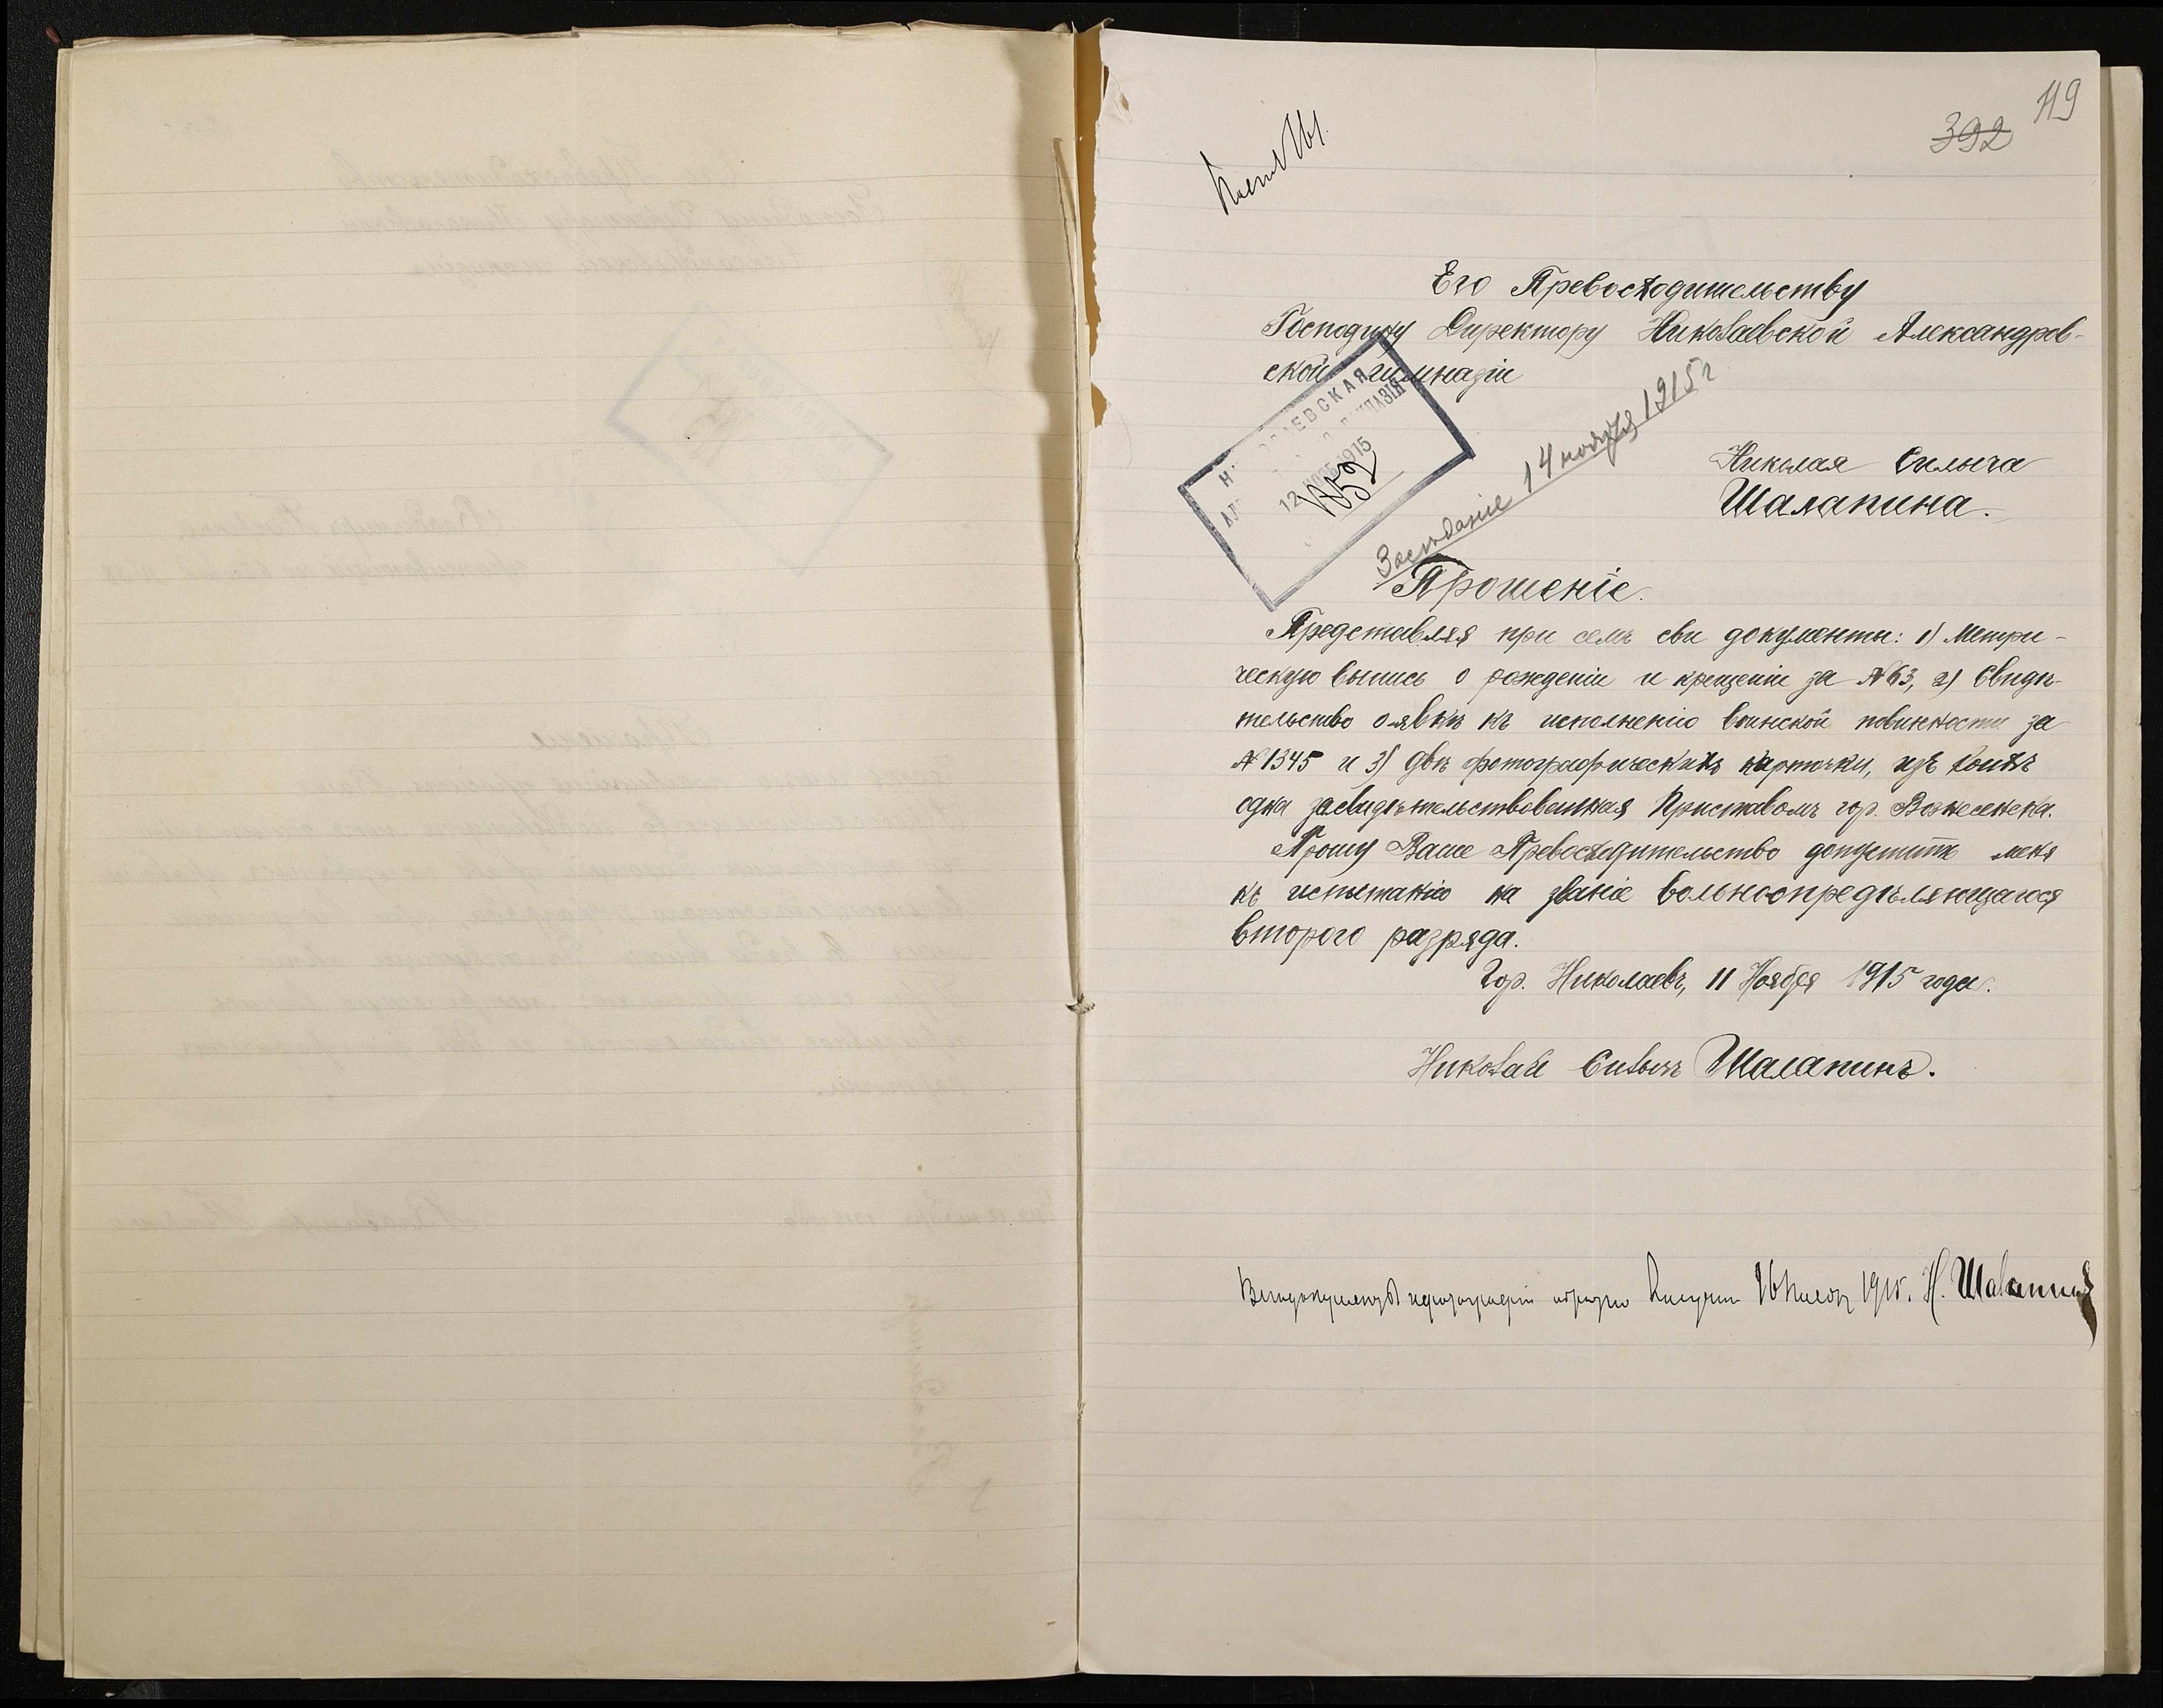 119
392
Его Превосходительству
Господину Директору Николаевской Александров-
ской гимназіи
НИКОЛАЕВСКАЯ
ГИМНАЗІЯ
12 НОЯБ 1915
1052
Засѣданіе 14 ноября 1915 г
Николая Силыча
Шалапина.
Прошеніе.
Представляя при семъ сви документы: 1) Метри-
ческую выпись о рожденіи и крещеніи за №63, 2) Свидѣ-
тельство о явкѣ къ исполненію воинской повинности за
№1345 и 3) двѣ фотографическихъ карточки, изъ коихъ
одна засвидѣтельствованная Приставомъ гор. Вознесенска.
Прошу Ваше Превосходительство допустить меня
къ испытанію на званіе вольноопредѣляющагося
второго разряда.
Гор. Николаевъ, 11 Ноября 1915 года.
Николай Силычъ Шалапинъ.
обратно 1915. Н. Шалапинъ